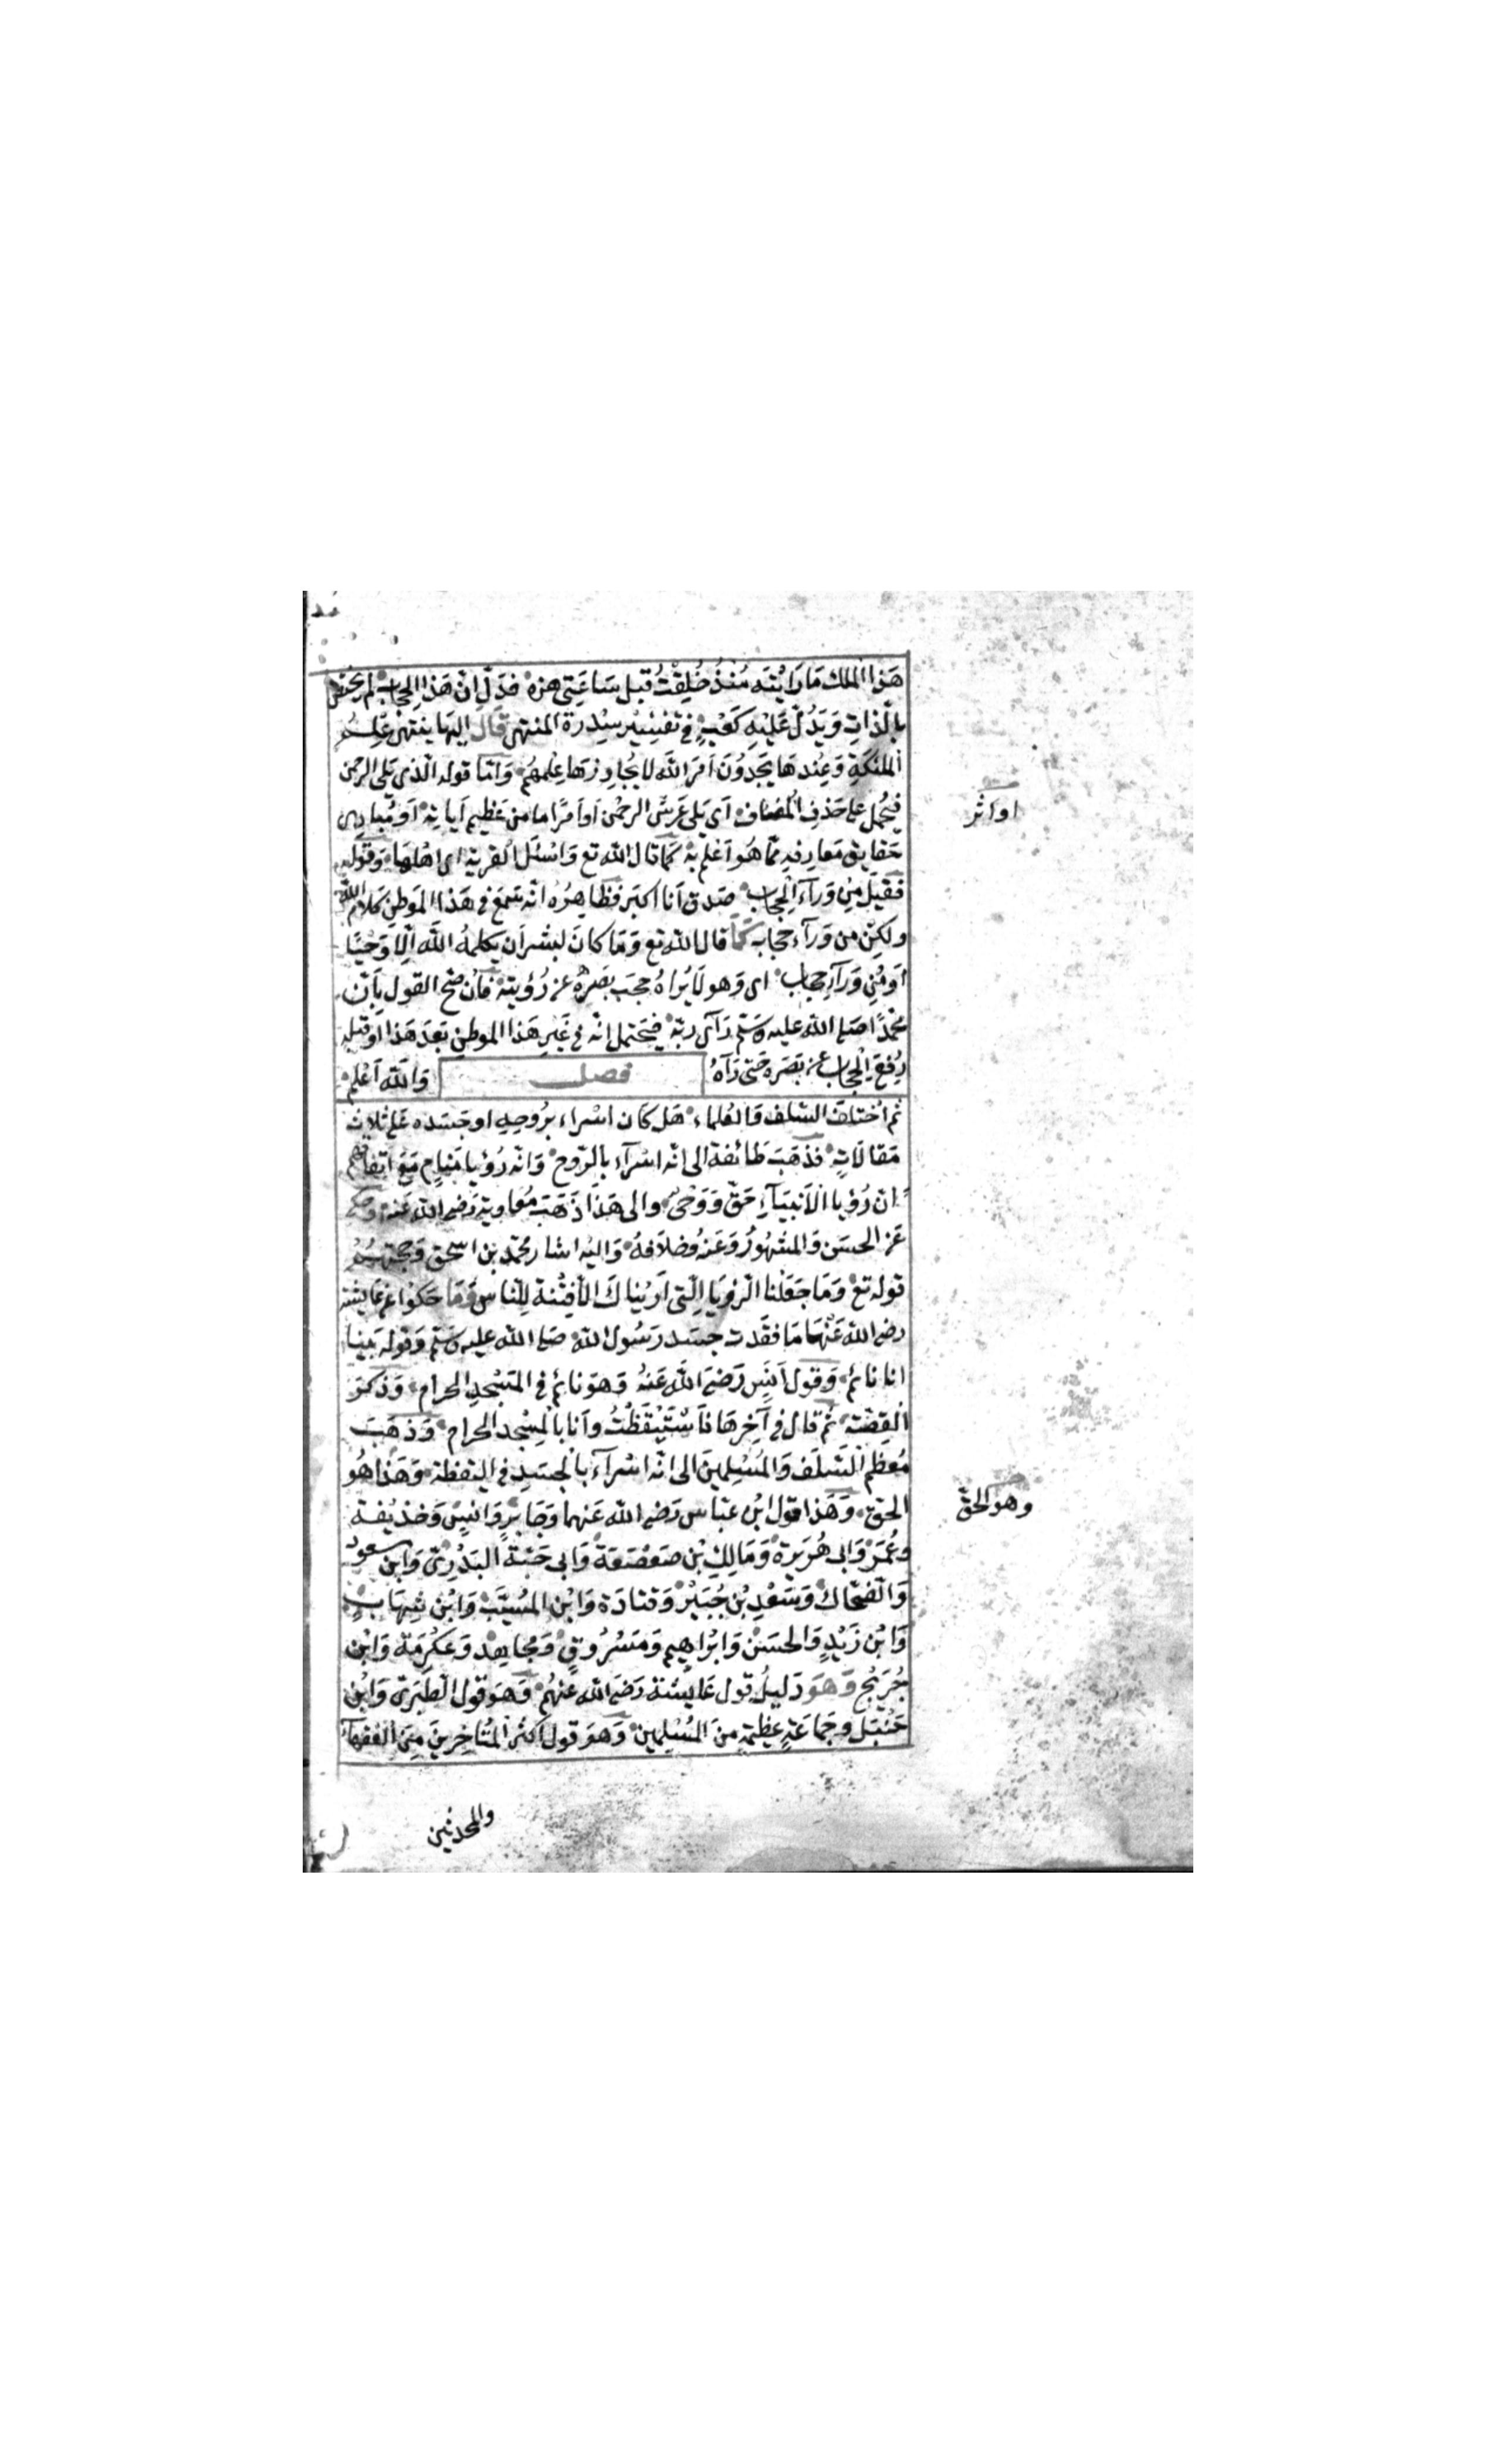 هَذا الملك مَا رَاَيْتَه مُنْذُ خُلِقْتُ قبل سَاعَتى هزه فدَلّ انّ هَذا الحِجاب لم يختصّ
بالّذاتِ وَيَدُلّ عَلَيْهِ كَعْبٍ فى تفسِيْر سِدرة المنتهى قال اليها ينتهى عِلم
الملئكةِ وَعِندهَا يَجِدُونَ اَمرَ اللّه لا يُجاوِزهَا عِلمهُمْ وَاَمّا قوله الّذى يَلى الرحمن
فيُحْمل على حَذفِ المُضاف اَى يَلى عَرشَ الرحْمن اَوْ اَمرًا مَا من عَظيم اَياتِهْ اَوْ مَبَادِى
حَقايق مَعارِفهِ ممّا هُوَ اَعْلم بهْ كمَا قال الله تع وَاسْئَلِ القريَة اى اَهْلهَا وَقوله
فقيْلَ مِنْ وَرَآءِ الحِجَاب صَدق اَنَا اكبَر فظَاهِرُه انّه سَمِعَ فى هَذا المَوطِنِ كلام الله
ولكِن من وَرَآءِ حِجَاب كمَا قال الله تع وَمَا كانَ لبشر اَن يكلمَهُ اللّه اِلّا وَحْيًا
اَوْ مِنْ وَرَآءِ حِجاب اى وَهو لَا يَراهُ حجَب بَصَرهُ عن رُؤيته فاِنْ صَحّ القول بِاَن
محمّدًا صَلى اللّه عليه وَسَلم رَآى ربّه فيَحتمل انّه فى غَيْرِ هَذا الموطِن بَعدَ هَذا اَو قبله
رُفِعَ الحِجَاب عن بَصَره حَتى رَآهُ فصل وَاللّه اَعْلم
ثم اختلف السّلف وَالعُلماء هَل كَان اسْراء برُوحِهِ اَو جَسَده عَلى ثلاث
مَقالاتٍ فذهَبَ طَائفة الى انّه اسْرآء بالرّوح وَانّه رُؤيا مَنامٍ مَعَ اتّفاقهم
انّ رُؤيا الاَنبيَآءِ حَقّ وَوَحْىٌ والى هَذا ذَهَبَ مُعاوية رَضى اللّه عَنه وَحكى
عَن الحسَن وَالمشْهُورُ وَعَنهُ خِلافهُ وَاليْه اشار محمّد بن اسحق وَحجّتهُمْ
قوله تع وَمَا جَعَلْنَا الرّؤيَا الّتى اَرَيْناكَ الاّ فِتْنةً لِلنّاس وَمَا حَكوْا عن عَايشة
رضى اللّه عَنْهَا مَا فقدت جَسَد رَسُول اللّه صَلى اللّه عليه وَسَلم وَقوله بَينَا
انَا نائمْ وَقول اَنَس رَضىَ اللّه عَنهُ وَهوَ نائم فى المَسْجدِ الحرام وَذكر
القِصّة ثم قال فى آخِرهَا فاَسْتَيْقَظْتُ واَنا بالمسْجد الحرام وَذهَبَ
مُعظَم السَّلَفِ وَالمُسْلِمينَ الى انّه اسْرآء بالجسَدِ فى اليقظة وَهَذا هُو
الحق وَهَذا قول ابْن عَبّاس رَضى اللّه عَنهما وَجَابِرٍ وَانَسٍ وَحذيْفة
وعُمَرَ وَابى هُرَيرة وَمَالِكِ بْن صَعْصَعَة وَابى حَبّة البَدْرِىّ وَابن مسعود
وَالضّحّاك وَسَعْدِ بْن جُبَيْر وَقتادَة وَابْن المسَيّب وَابْن شِهَابٍ
وَابْن زَيْدٍ وَالحسَن وَابْراهِيم وَمَسْرُوقٍ وَمجاهِد وَعَكْرمَة وَابْن
جُرَيج وَهوَ دَليلُ قول عَايشَة رَضىَ اللّه عَنهُم وَهوَ قول الطَبَرىّ وَابْن
حَنْبَل وجَمَاعَةٍ عظِيْمةٍ مِنَ المُسْلِمينَ وَهوَ قول اَكثر المُتَاخِرينَ مِنَ الفقهآءِ
والمحدثين
او اثر
وهو الحقّ